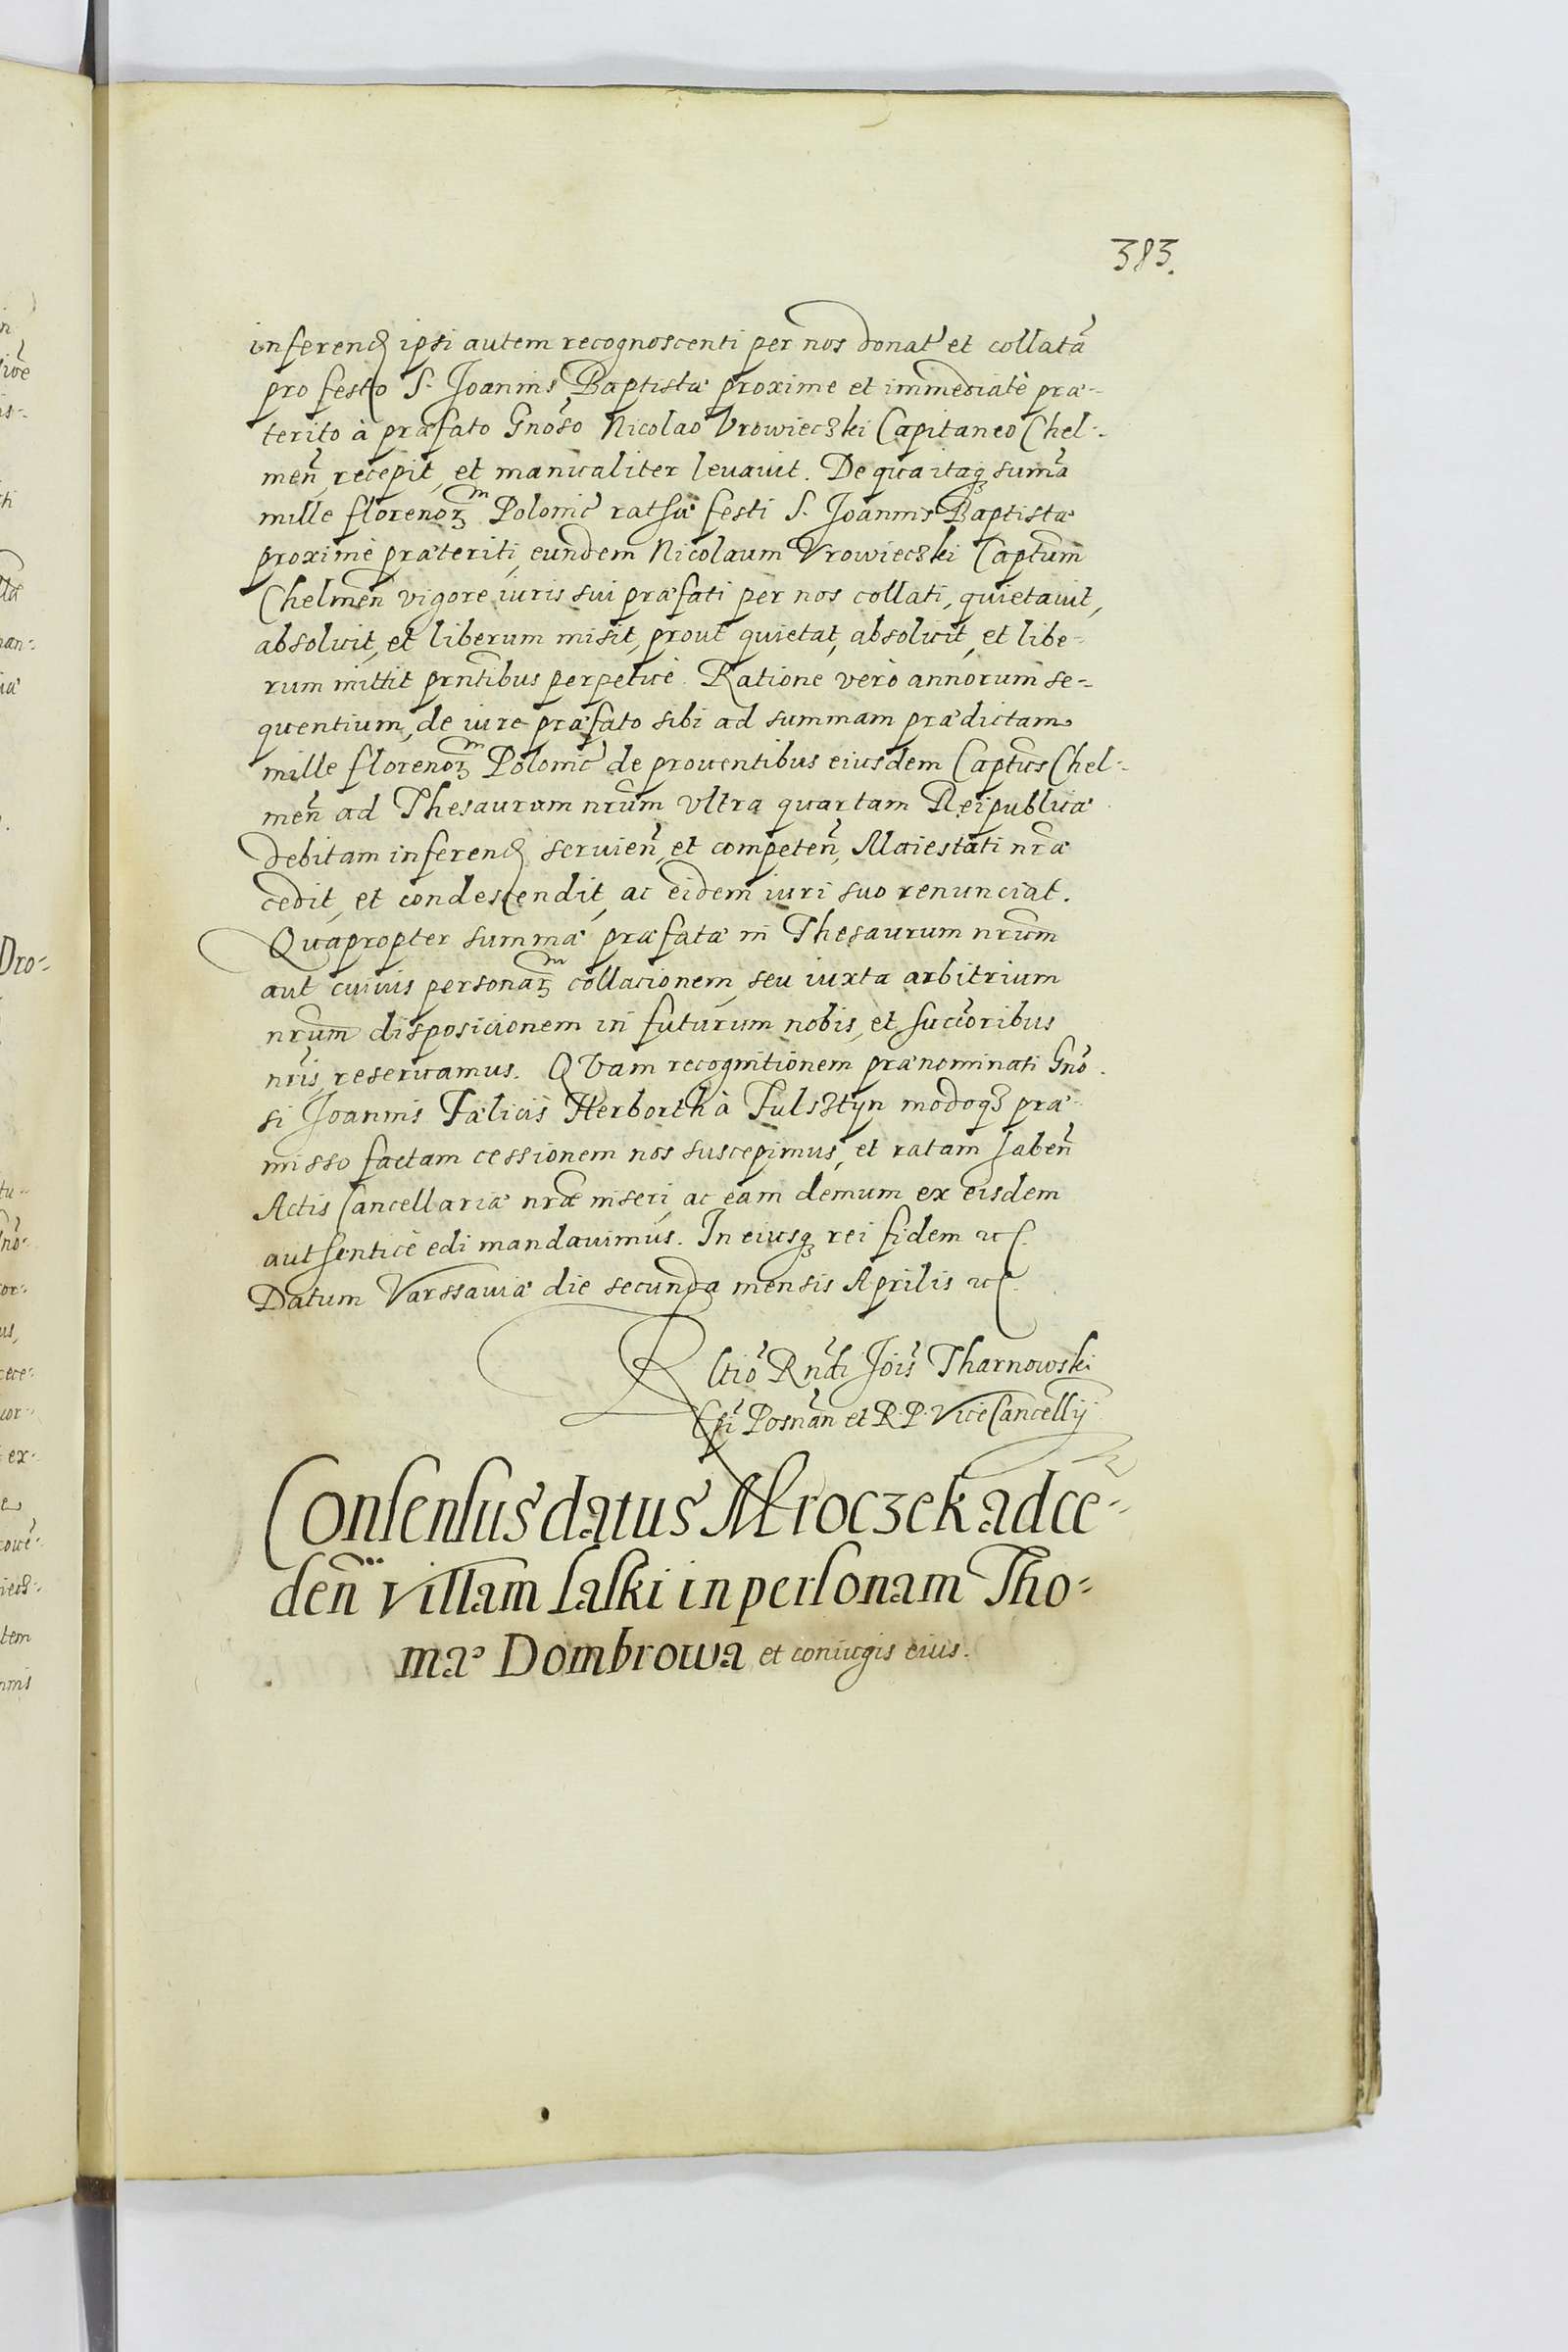 383.
inferend ipsi autem recognoscenti per nos donat et collata
pro festo S. Joannis Baptistæ proxime et immediatè præ-
terito à præfato Gnoso Nicolao Vrowieczki Capitaneo Chel-
men, recepit, et manualiter leuauit. De qua itaq suma
mille florenorm Polonic rathæ festi S. Joannis Baptistæ
proximè præteriti, eundem Nicolaum Vrowieczki Captum
Chelmen vigore iuris sui præfati per nos collati, quietauit,
absoluit, et liberum misit, prout quietat, absoluit, et libe-
rum mittit prntibus perpetuè. Ratione verò annorum se-
quentium, de iure præfato sibi ad summam prædictam
mille florenorm Polonic de prouentibus eiusdem Captus Chel-
men ad Thesaurum nrum vltra quartam Reipublicæ
debitam inferend seruien, et competen, Maiestati nræ
cedit, et condescendit, ac eidem iuri suo renunciat.
Quapropter summæ præfatæ in Thesaurum nrum
aut cuiuis personarm collacionem, seu iuxta arbitrium
nrum disposicionem in futurum nobis, et succoribus
nris, reseruamus. QVam recognitionem prænominati Gno-
si Joannis Fælicis Herborth à Fulsztyn modoq præ-
misso factam cessionem nos suscepimus, et ratam haben
Actis Cancellariæ nræ inseri, ac eam demum ex eisdem
authenticè edi mandauimus. In eiusq rei fidem etc.
Datum Varssauiæ die secunda mensis Aprilis etc.
Rltio Rndi Jois Tharnowski
Epi Posnan et R. P. ViceCancellij
Consensus datus Mroczek ad ce-
den villam Laski in personam Tho-
mæ Dombrowa et coniugis eius.